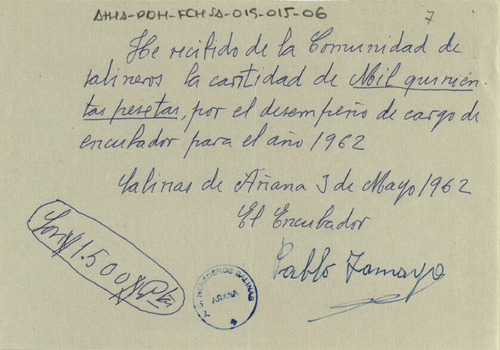 AHA-PDH-FCHSA-019-015-06
7
He recibido de la Comunidad de
salineros la cantidad de Mil quinien-
tas pesetas, por el desempeño de cargo de
encubador para el año 1962
Salinas de Añana 3 de Mayo 1962
El Encubador
Son 1.500 Pts
HEREDEROS SALINAS
AÑANA
Pablo Tamayo